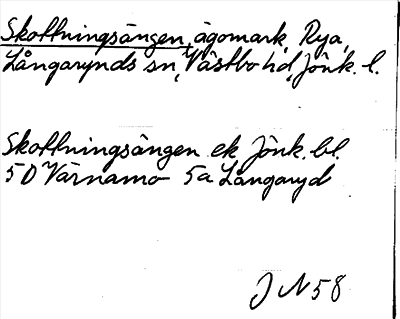 Skottningsängen, ägomark, Rya,
Långaryds sn, Västbo hd, Jönk. l.
Skottningsängen ek Jönk. bl.
5D Värnamo 5a Långaryd
J N 58